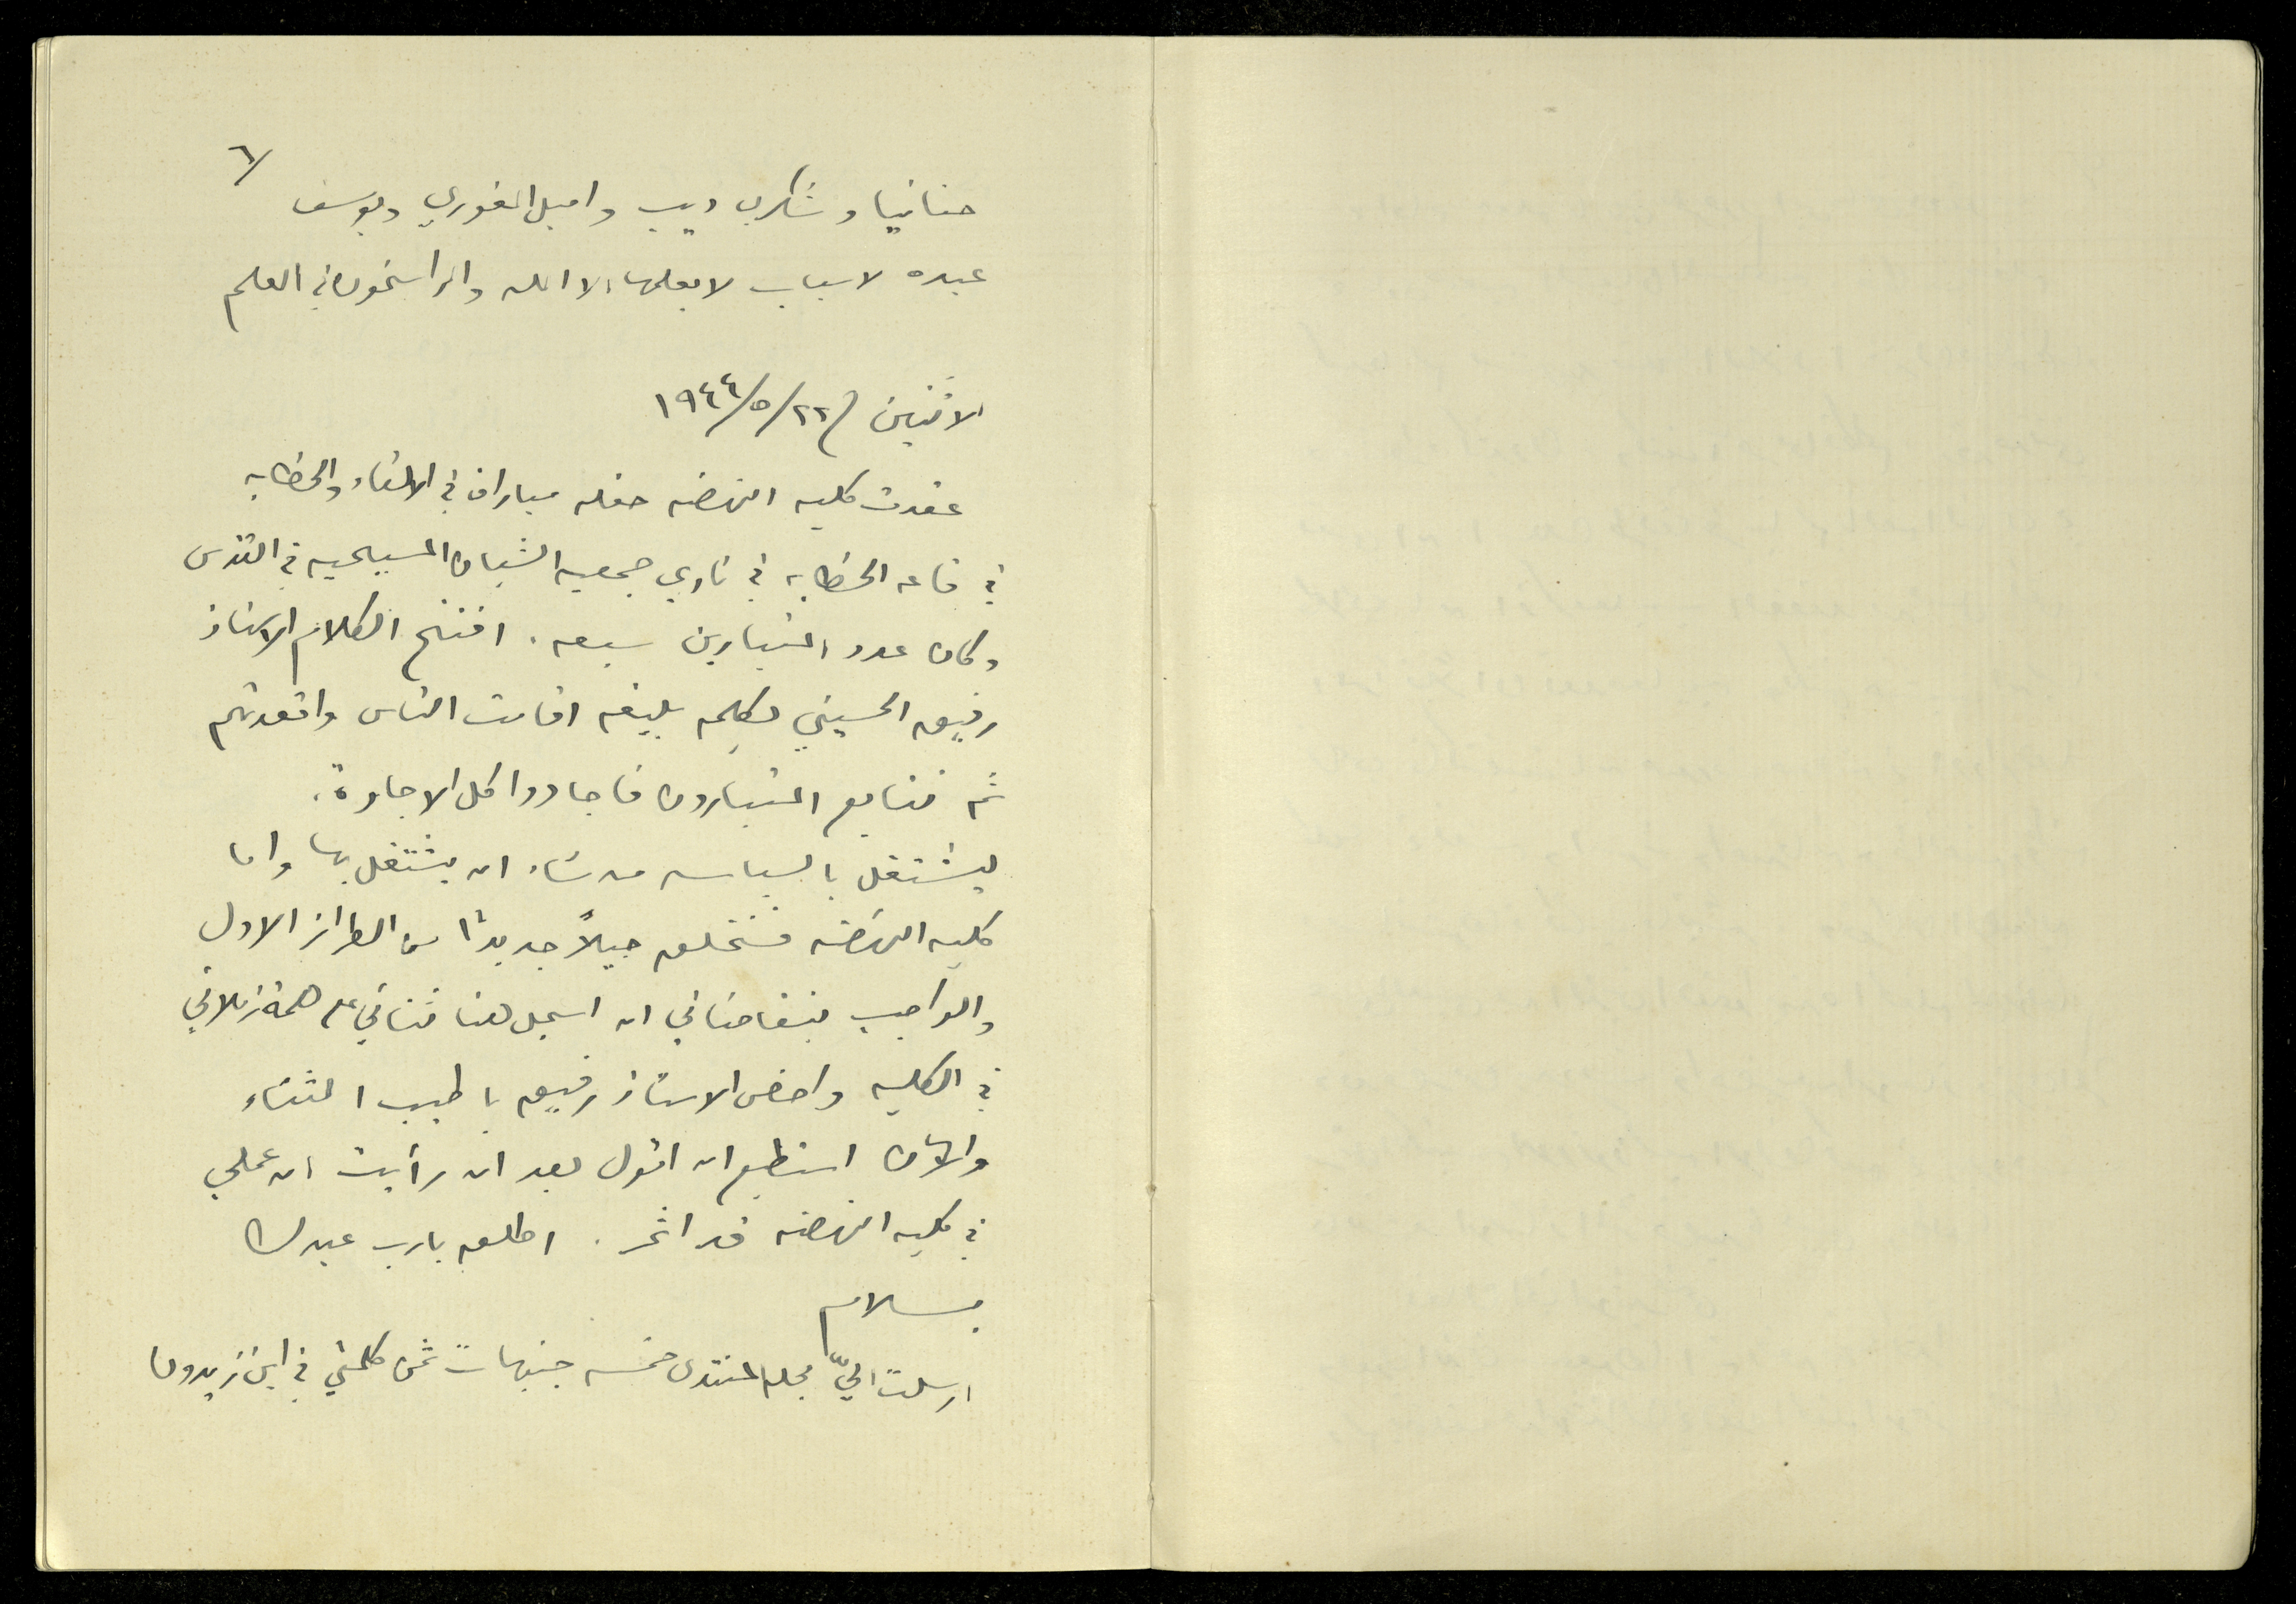 ٦/
حنانيا وشكري ديب واميل الغوري ويوسف
عبده لاسباب لا يعلمها الا الله والراسخون في العلم
الاثنين ٢٢/٥/١٩٤٤
عقدت كليه النهضه حفله مباراة في الالقاء والخطابه
في قاعه الخطابه في نادي جمعيه الشبان المسيحيه في القدس
وكان عدد المتبارين سبعه. افتتح الكلام الاستاذ
رفيق الحسيني بكلمه بليغه اقامت الناس واقعدتهم
ثم تتابع المتبارون فاجادوا كل الاجادة.
ليشتغل بالسياسه من شاء ان يشتغل بها واما
كليه النهضه فستخلق جيلاً جديداً من الطراز الاول
والواجب يتقاضاني ان اسجل هنا ثنائي على همة زملائي
في الكليه واخص الاستاذ رفيق باطيب الثناء
والآن استطيع ان اقول بعد ان رأيت ان عملي
في كليه النهضه قد اثمر. اطلق يا رب عبدك
بسلام
ارسلت اليّ مجله المنتدى خمسه جنيهات ثمن كلمتي في ابن زيدون